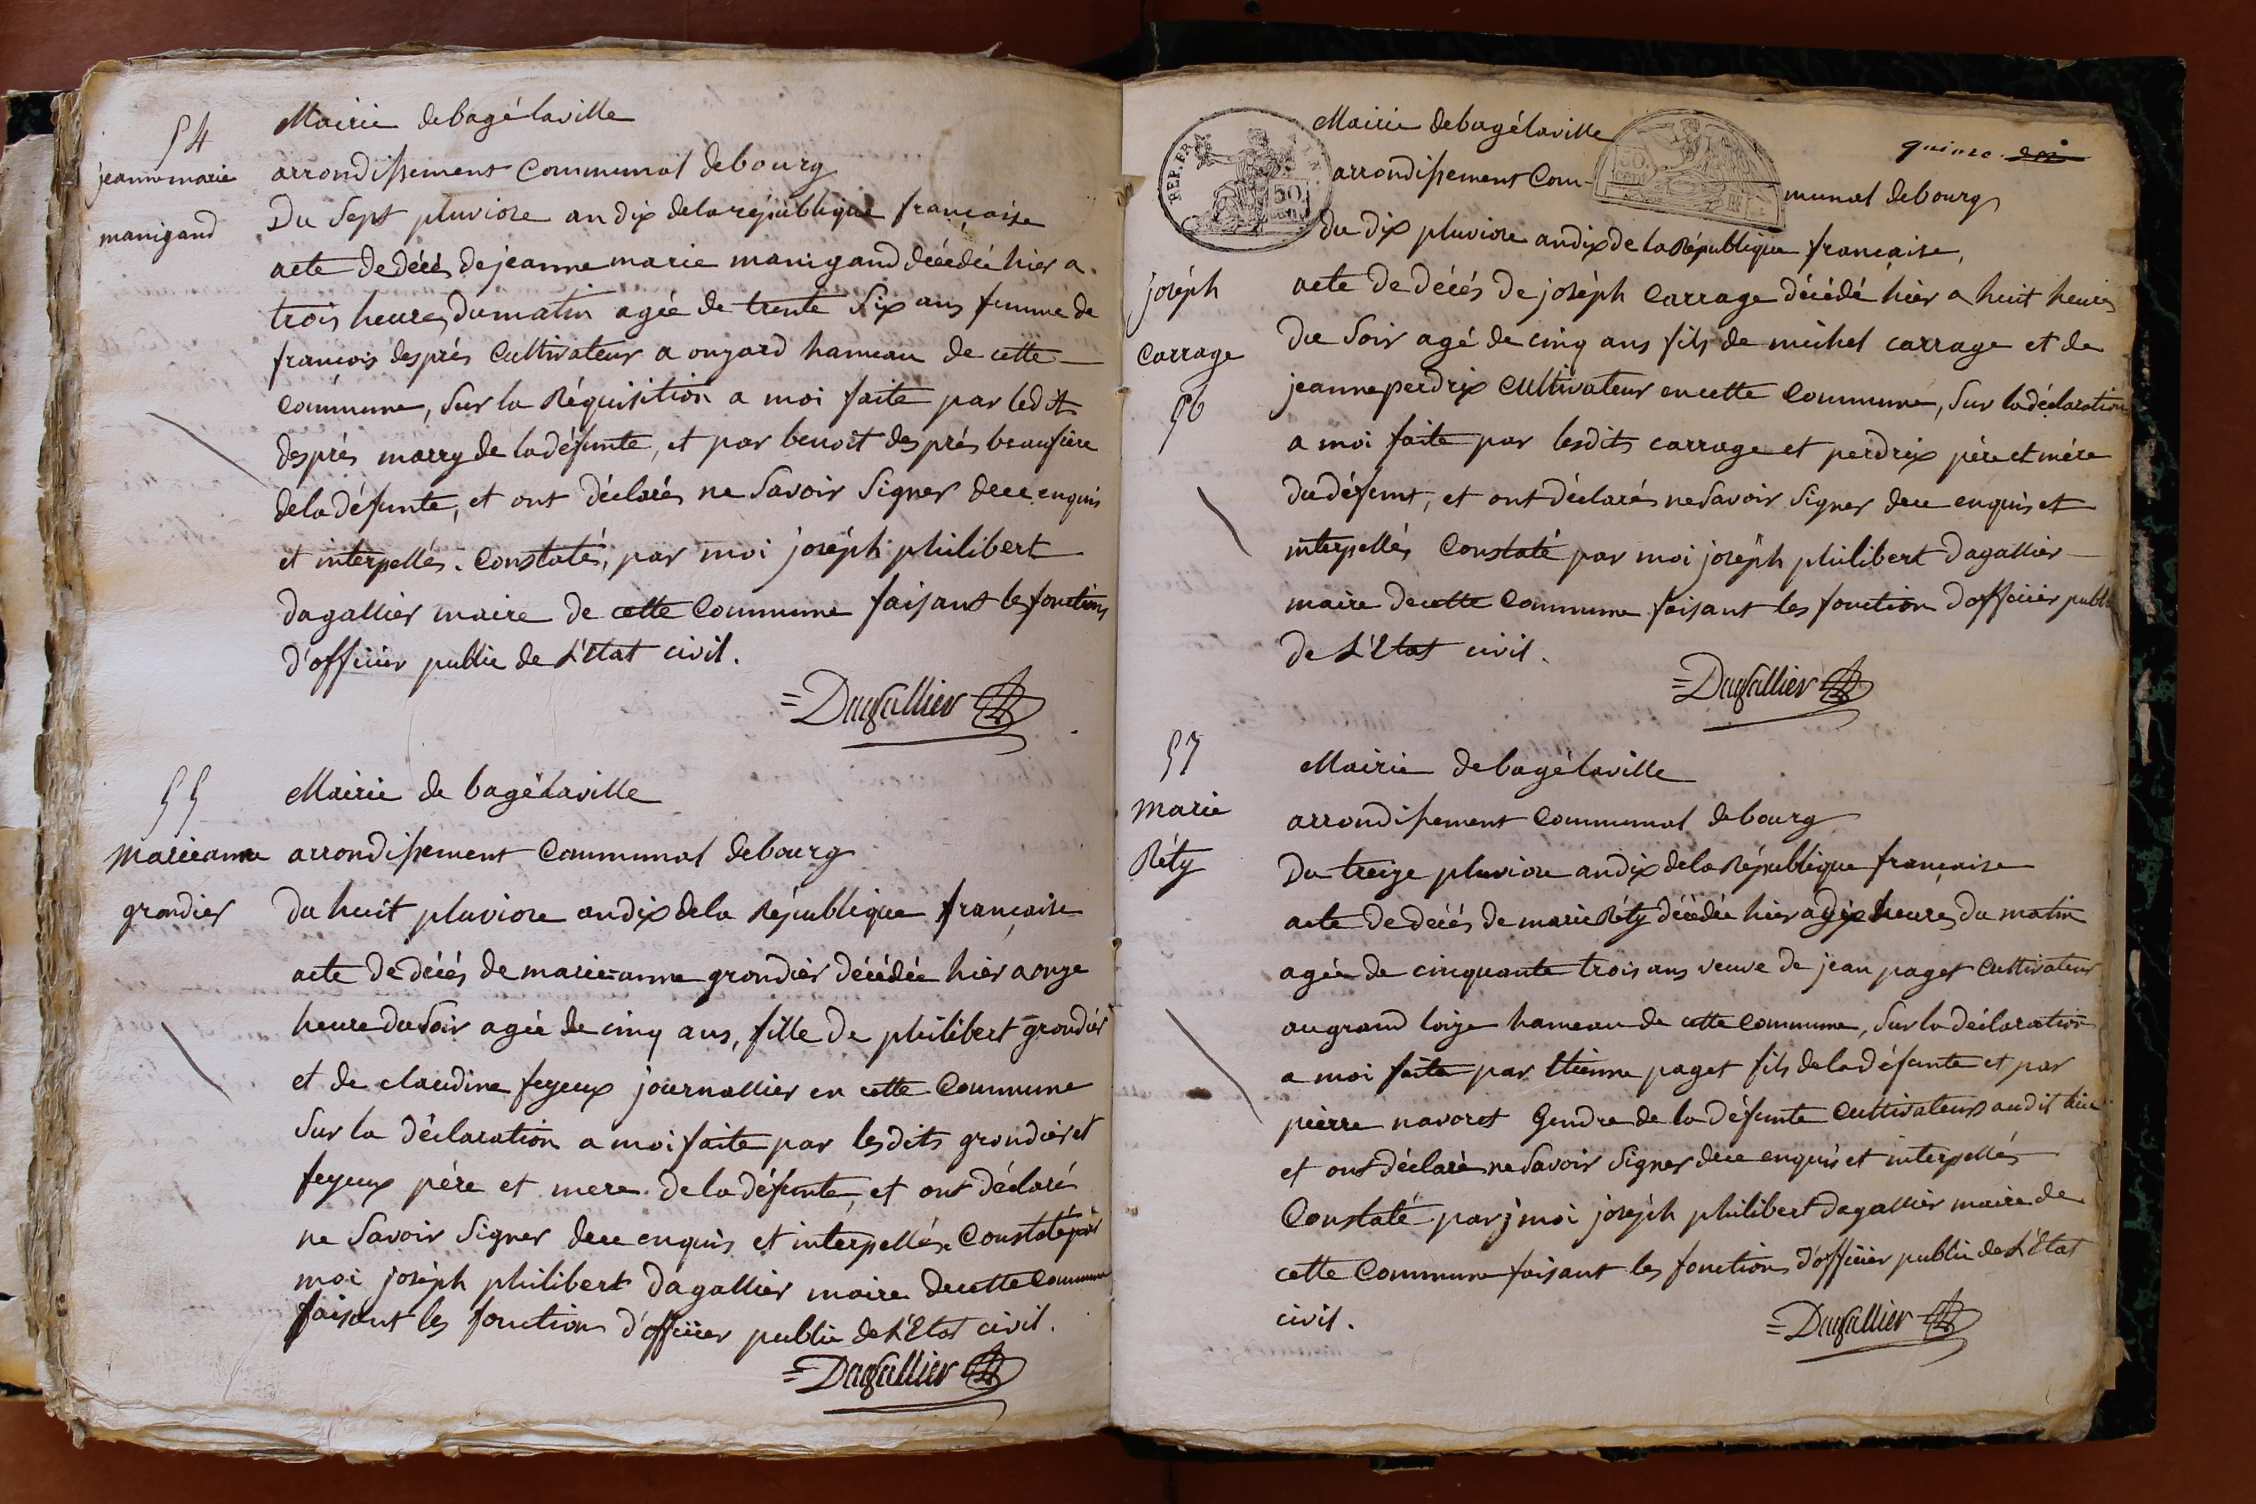 54
jeanne marie
manigand
Mairie de bagé laville
arrondissement Communal de bourg
Du Sept pluviose an dix de la république française
acte de décés de jeanne marie manigand décédée hier a
trois heures du matin agée de trente Six ans femme de
francois després Cultivateur a ongard hameau de cette
Commune, Sur la Réquisition a moi faite par ledit
després marry de la défunte, et par benoit després beaufrere
de la défunte, et ont déclarés ne Savoir Signer de ce enquis
et interpellés. Constatés, par moi joséph philibert
dagallier maire de cette Commune faisant les fonctions
d'officier public de L'Etat civil.
=Dagallier
55
Marieanne
grondier
Mairie de bagélaville
arrondissement Communal de bourg
du huit pluviose an dix de la République française
acte de décés de marie-anne grondier décédée hier a onze
heure du Soir agée de cinq ans, fille de philibert grondier
et de claudine feyeux journallier en cette Commune
Sur la déclaration a moi faite par lesdits grondier et
feyeux pére et mere de la défunte, et ont déclaré
ne Savoir Signer de ce enquis et interpellés. Constaté par
moi joséph philibert dagallier maire de cette Commune
faisant les fonctions d'officier public de L'Etat civil.
=Dagallier
quinze
REP. FRA
50
CENT
50
CENT
Mairie de bagélaville
arrondissement Com-
munal de bourg
du dix pluviose an dix de la République française,
joséph
Carrage
56
acte de décés de joséph Carrage décédé hier a huit heures
du Soir agé de cinq ans fils de michel carrage et de
jeanne perdrix Cultivateur en cette Commune, Sur la déclaration
a moi faite par lesdits carrage et perdrix pére et mére
du défunt, et ont déclarés ne Savoir Signer de ce enquis et
interpellés Constaté par moi joséph philibert dagallier
maire de cette Commune faisant les fonction d'officier public
de L'Etat civil.
=Dagallier
57
Marie
Réty
Mairie de bagélaville
arrondissement Communal de bourg
Du treize pluviose an dix de la République française
acte de decés de marie Réty décédée hier a dix heures du matin
agée de cinquante trois ans veuve de jean paget Cultivateur
au grand loize hameau de cette Commune, Sur la déclaration
a moi faite par Etienne paget fils de la défunte et par
pierre navoret Gendre de la défunte Cultivateurs audit lieu
et ont déclarés ne Savoir Signer de ce enquis et interpellés
Constaté par moi joséph philibert dagallier maire de
cette Commune faisant les fonctions d'officier public de L'Etat
civil.
=Dagallier